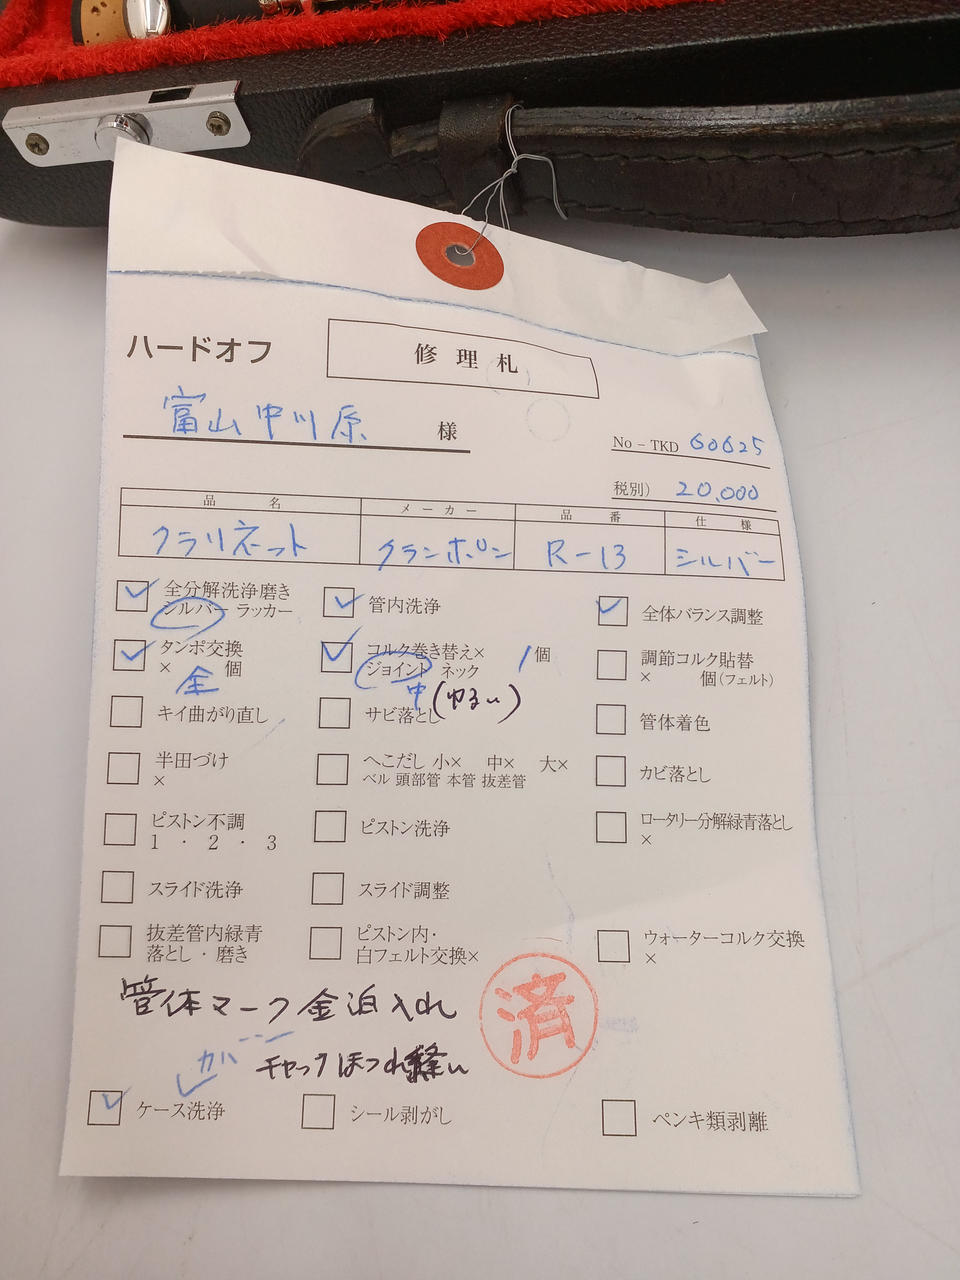 ハードオフ
修理札
富山中川原 様
No－TKD 60625
税別） 20.000
品名 メーカー 品番 仕様
クラリネット クランポン R-13 シルバー
全分解洗浄磨き
シルバー ラッカー
管内洗浄
全体バランス調整
タンポ交換
× 個
全
コルク巻き替え× 1個
ジョイント ネック
中(ゆるい)
調節コルク貼替
× 個(フェルト)
キイ曲がり直し
サビ落とし
管体着色
半田づけ
×
へこだし 小× 中× 大×
ベル 頭部管 本管 抜差管
カビ落とし
ピストン不調
1・2・3
ピストン洗浄
ロータリー分解緑青落とし
×
スライド洗浄
スライド調整
抜差管内緑青
落とし・磨き
ピストン内・
白フェルト交換×
ウォーターコルク交換
×
管体マーク金泊入れ
済
カバー
チャックほつれ縫い
ケース洗浄
シール剥がし
ペンキ類剥離